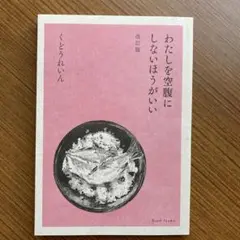 わたしを空腹に
しないほうがいい
改訂版
くどうれいん
BOOK NERD